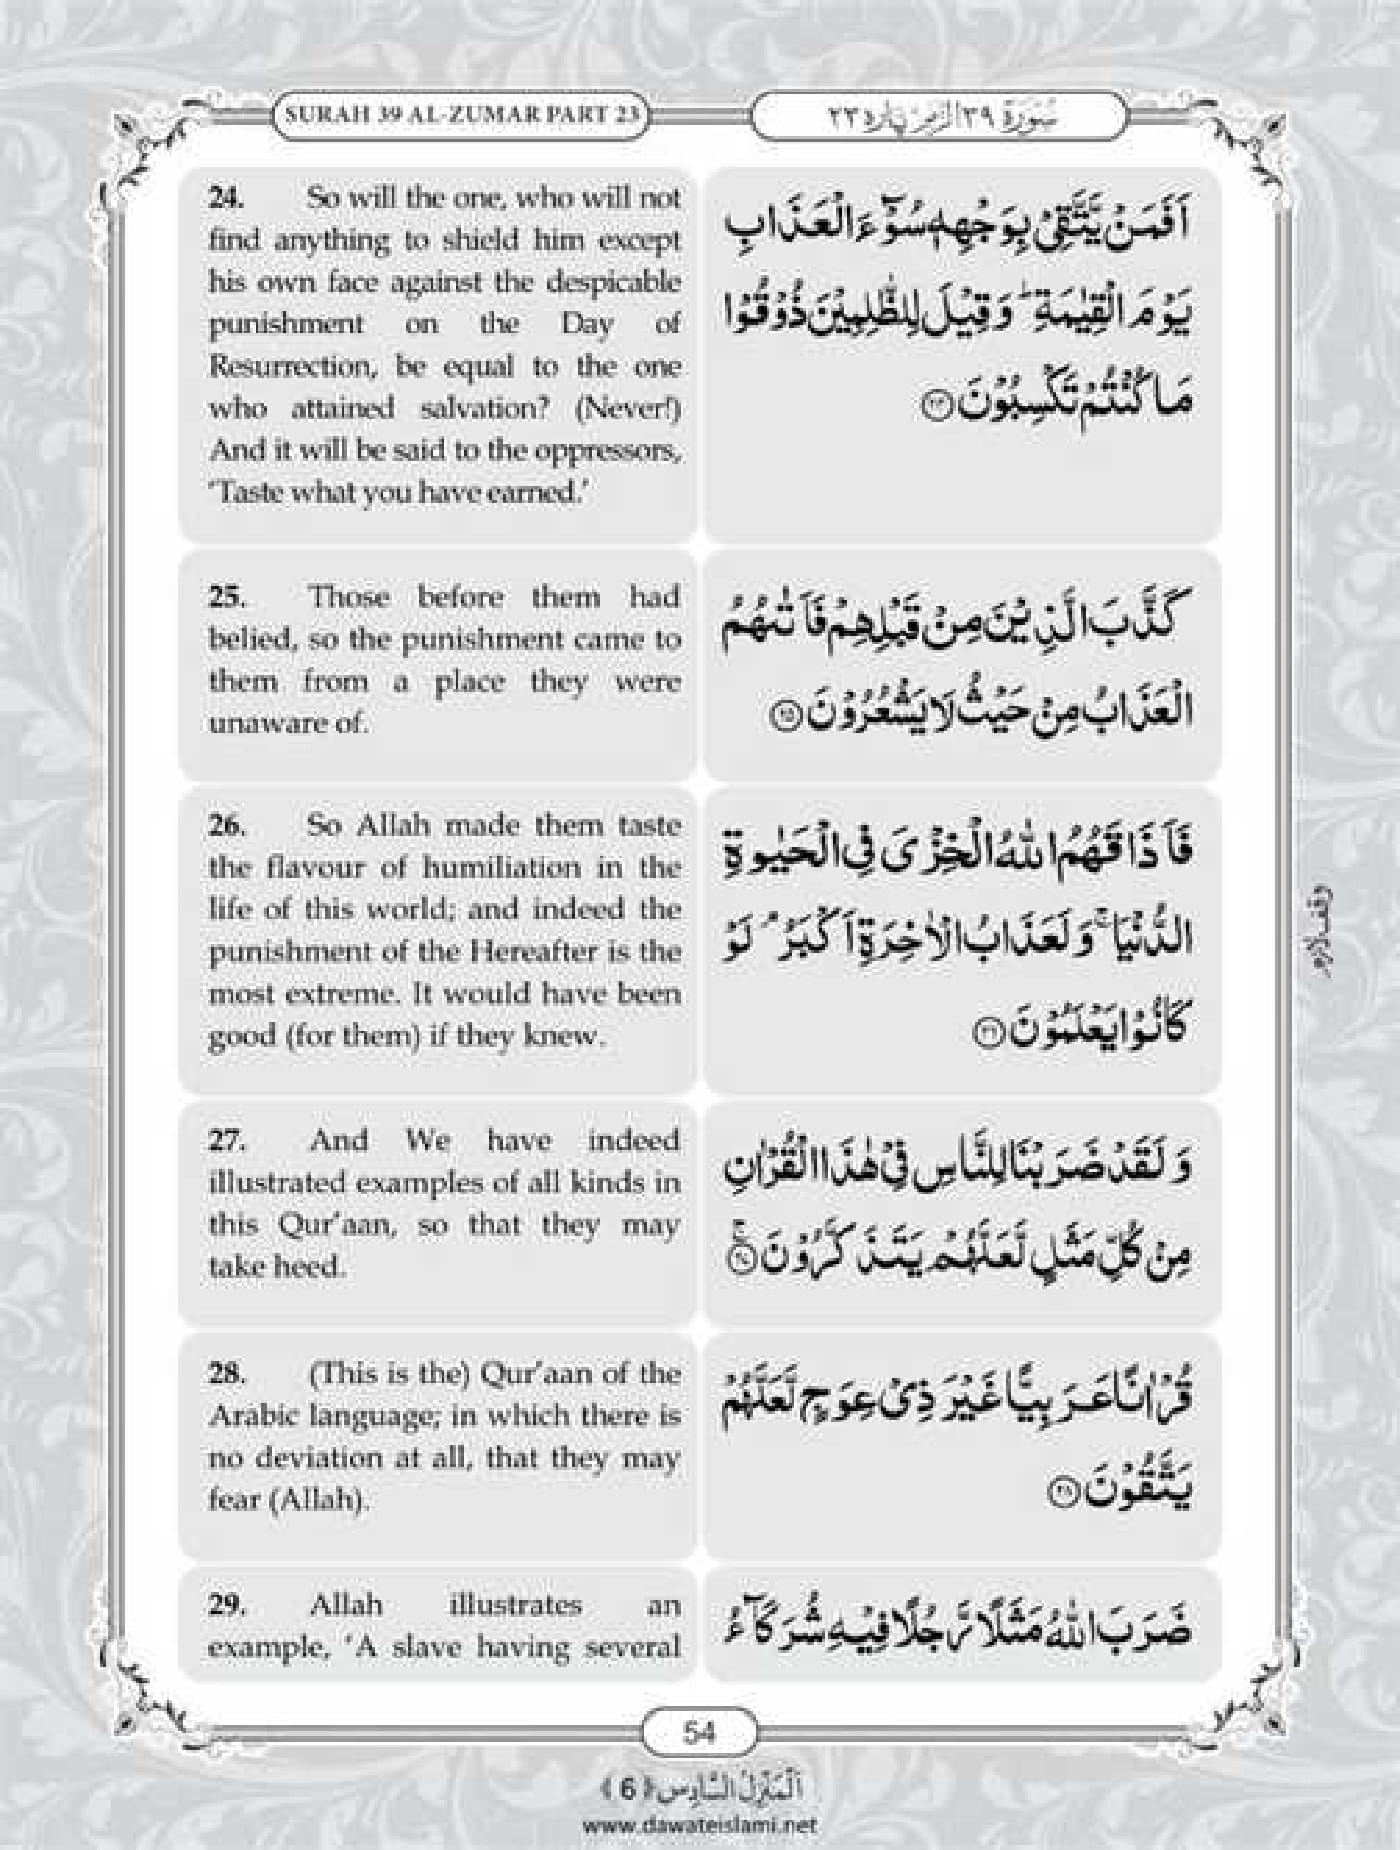 SURAH 39 AL-ZUMAR PART 23
سُوْرَة ٣٩ الزمر پاره ٢٣
24. So will the one, who will not
find anything to shield him except
his own face against the despicable
punishment on the Day of
Resurrection, be equal to the one
who attained salvation? (Never!)
And it will be said to the oppressors,
‘Taste what you have earned.’
اَفَمَنْ يَّتَّقِيْ بِوَجْهِهٖ سُوْٓءَ الْعَذَابِ
يَوْمَ الْقِيٰمَةِ ؕ وَ قِيْلَ لِلظّٰلِمِيْنَ ذُوْقُوْا
مَا كُنْتُمْ تَكْسِبُوْنَ ﴿۲۴﴾
25. Those before them had
belied, so the punishment came to
them from a place they were
unaware of.
كَذَّبَ الَّذِيْنَ مِنْ قَبْلِهِمْ فَاَتٰىهُمُ
الْعَذَابُ مِنْ حَيْثُ لَا يَشْعُرُوْنَ ﴿۲۵﴾
26. So Allah made them taste
the flavour of humiliation in the
life of this world; and indeed the
punishment of the Hereafter is the
most extreme. It would have been
good (for them) if they knew.
فَاَذَاقَهُمُ اللّٰهُ الْخِزْيَ فِي الْحَيٰوةِ
الدُّنْيَا ۚ وَ لَعَذَابُ الْاٰخِرَةِ اَكْبَرُ ۘ لَوْ
كَانُوْا يَعْلَمُوْنَ ﴿۲۶﴾
وقف لازم
27. And We have indeed
illustrated examples of all kinds in
this Qur’aan, so that they may
take heed.
وَ لَقَدْ ضَرَبْنَا لِلنَّاسِ فِيْ هٰذَا الْقُرْاٰنِ
مِنْ كُلِّ مَثَلٍ لَّعَلَّهُمْ يَتَذَكَّرُوْنَ ﴿ۚ۲۷﴾
28. (This is the) Qur’aan of the
Arabic language; in which there is
no deviation at all, that they may
fear (Allah).
قُرْاٰنًا عَرَبِيًّا غَيْرَ ذِيْ عِوَجٍ لَّعَلَّهُمْ
يَتَّقُوْنَ ﴿۲۸﴾
29. Allah illustrates an
example, ‘A slave having several
ضَرَبَ اللّٰهُ مَثَلًا رَّجُلًا فِيْهِ شُرَكَآءُ
54
اَلْمَنْزِلُ السَّادِس ﴿6﴾
www.dawateislami.net